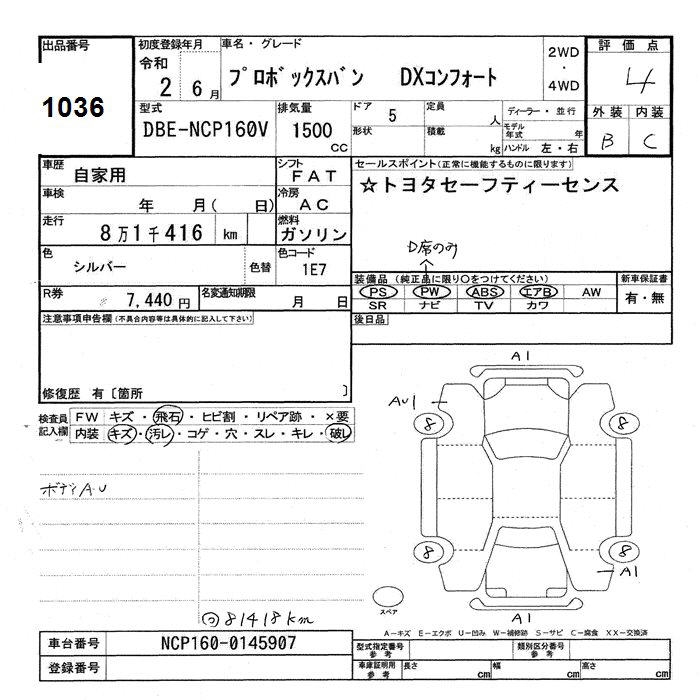 出品番号
1036
初度登録年月
令和
2 6月
車名・グレード
プロボックスバン DXコンフォート
2WD
・
4WD
評価点
4
外装 内装
B C
型式
DBE-NCP160V
排気量
1500
CC
ドア 5
形状
定員 人
積載 kg
ディーラー・並行
モデル年式 年
ハンドル 左・右
車歴
自家用
シフト
FAT
車検
年 月( 日)
冷房
AC
走行
8万1千416 km
燃料
ガソリン
色
シルバー
色替
色コード
1E7
R券
7,440円
名変通知期限
月 日
セールスポイント(正常に機能するものに限ります)
☆トヨタセーフティーセンス
D席のみ
装備品 (純正品に限り○をつけてください)
PS PW ABS エアB AW
SR ナビ TV カワ
新車保証書
有・無
後日品
注意事項申告欄(不具合内容等は具体的に記入して下さい)
修復歴 有〔箇所 〕
検査員
記入欄
FW キズ・飛石・ヒビ割・リペア跡・×要
内装 キズ・汚レ・コゲ・穴・スレ・キレ・破レ
ボディA・U
81418km
A1
AU1
8 8
8 8
A1
A1
スペア
A－キズ E－エクボ U－凹み W－補修跡 S－サビ C－腐食 XX－交換済
車台番号
NCP160-0145907
登録番号
型式指定番号
参考
類別区分番号
参考
車庫証明用
参考
長さ cm
幅 cm
高さ cm